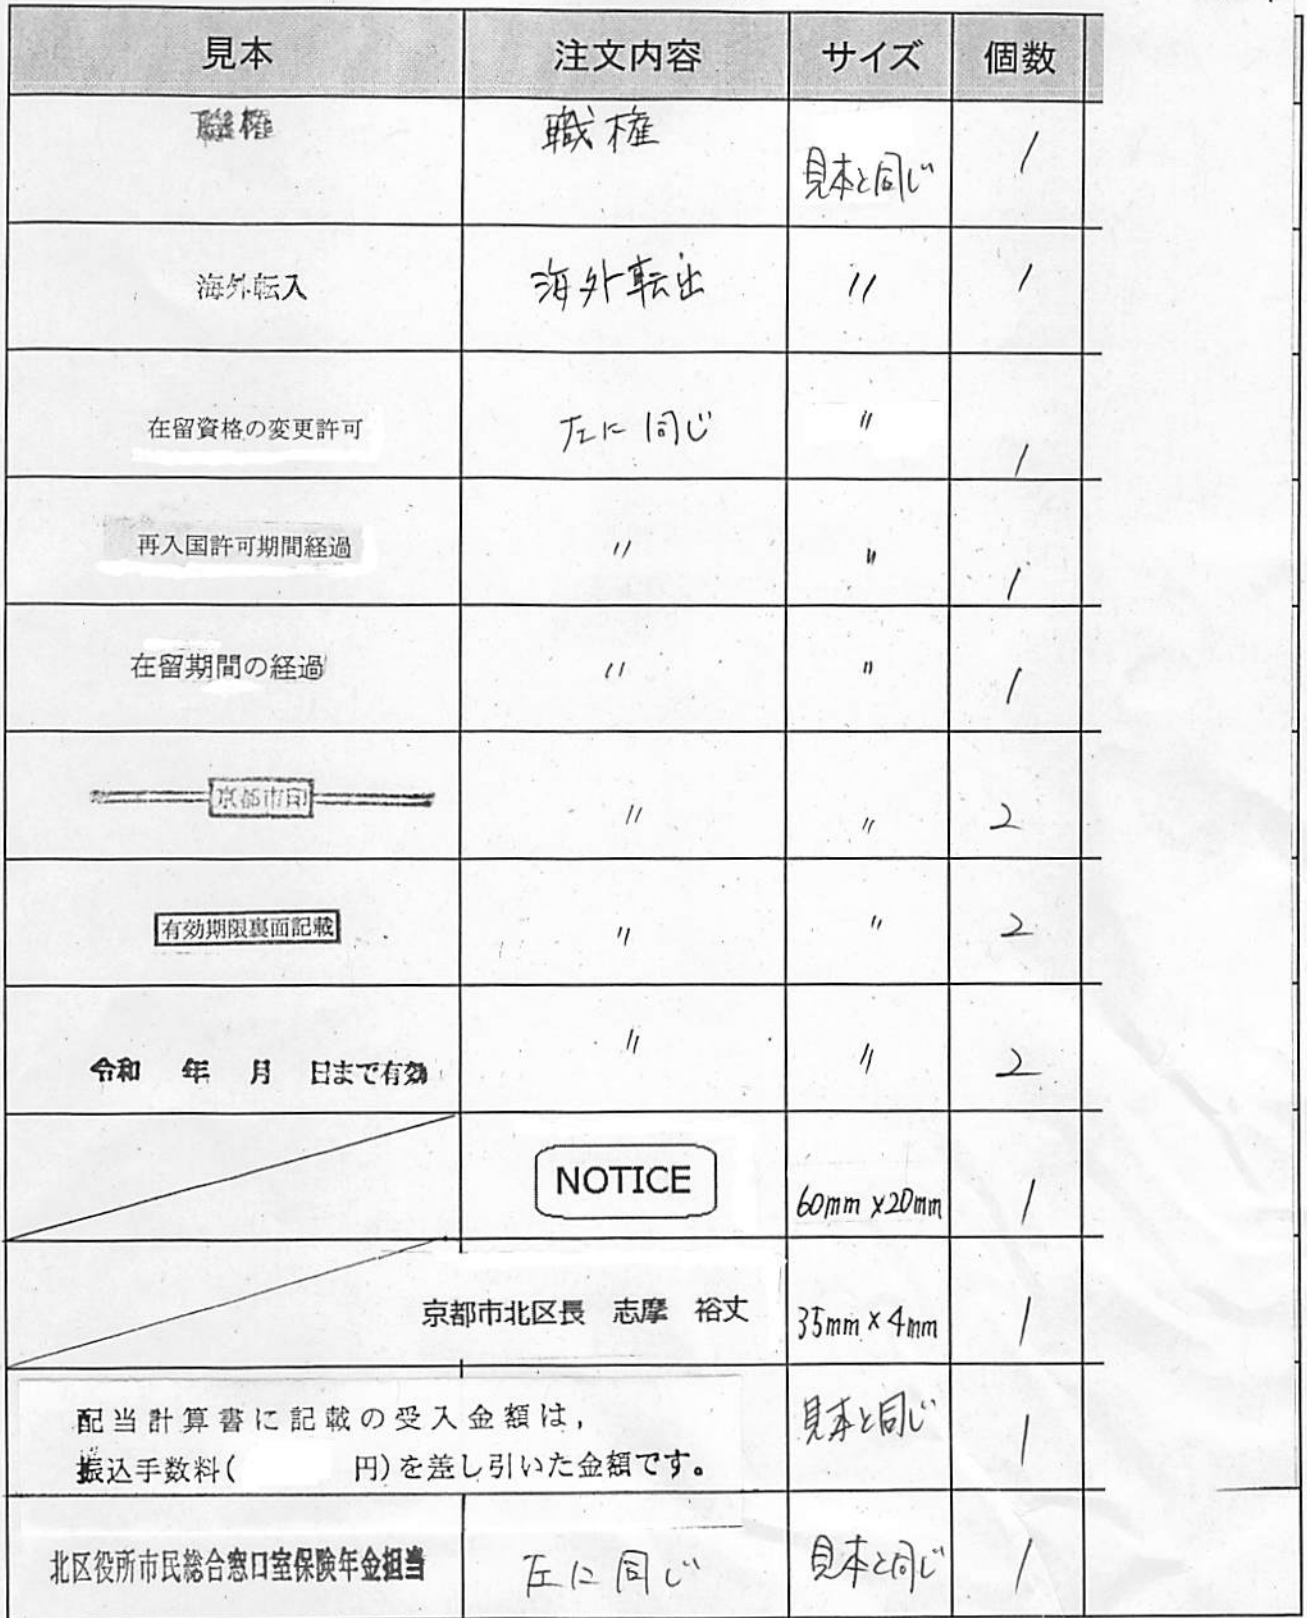 見本 注文内容 サイズ 個数
職権 職権 見本と同じ 1
海外転入 海外転出 〃 1
在留資格の変更許可 左に同じ 〃 1
再入国許可期間経過 〃 〃 1
在留期間の経過 〃 〃 1
京都市印 〃 〃 2
有効期限裏面記載 〃 〃 2
令和 年 月 日まで有効 〃 〃 2
NOTICE 60mm×20mm 1
京都市北区長 志摩 裕丈 35mm×4mm 1
配当計算書に記載の受入金額は,
振込手数料( 円)を差し引いた金額です。 見本と同じ 1
北区役所市民総合窓口室保険年金担当 左に同じ 見本と同じ 1